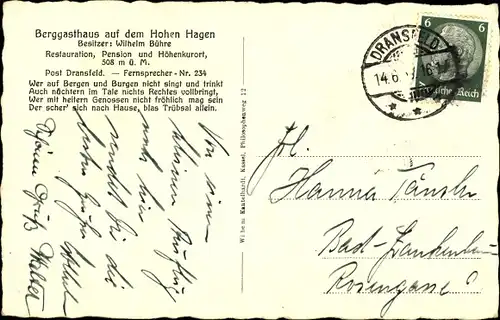 Berggasthaus auf dem Hohen Hagen
Besitzer: Wilhelm Bühre
Restauration, Pension und Höhenkurort,
508 m ü. M.
Post Dransfeld. — Fernsprecher - Nr. 234
Wer auf Bergen und Burgen nicht singt und trinkt
Auch nüchtern im Tale nichts Rechtes vollbringt,
Wer mit heitern Genossen nicht fröhlich mag sein
Der scher' sich nach Hause, blas Trübsal allein.
Von einem
kleinen Ausflug
nach hier
sendet Dir die
besten Grüße
Gruß
Kautelhardt, Kassel, Philosophenweg 12
DRANSFELD
14.6.
6
6
Deutsche Reich
Frl.
Hanna
Bad-
Rosengasse 6